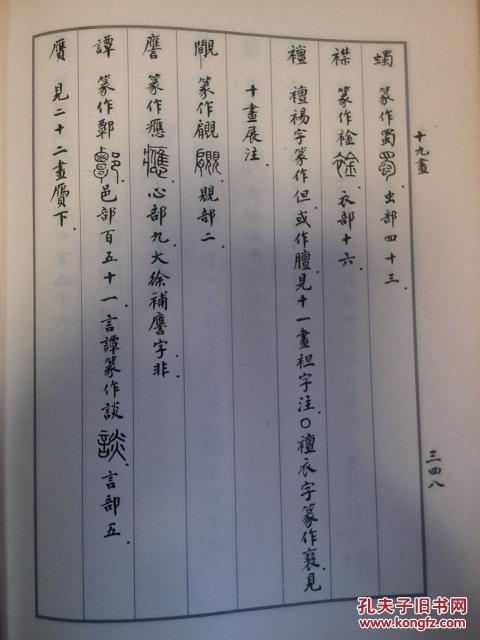 十九畫
蠋 篆作蜀 虫部四十三
襟 篆作䘳 衣部十六
襢 襢裼字篆作但或作膻見十一畫袒字注〇襢衣字篆作襄見
十畫展注
覵 篆作覵 覞部二
譍 篆作應 心部九大徐補譍字非
譚 篆作鄲 邑部百五十一言譚篆作談 言部五
贋 見二十二畫贗下
三四八
孔夫子旧书网
www.kongfz.com